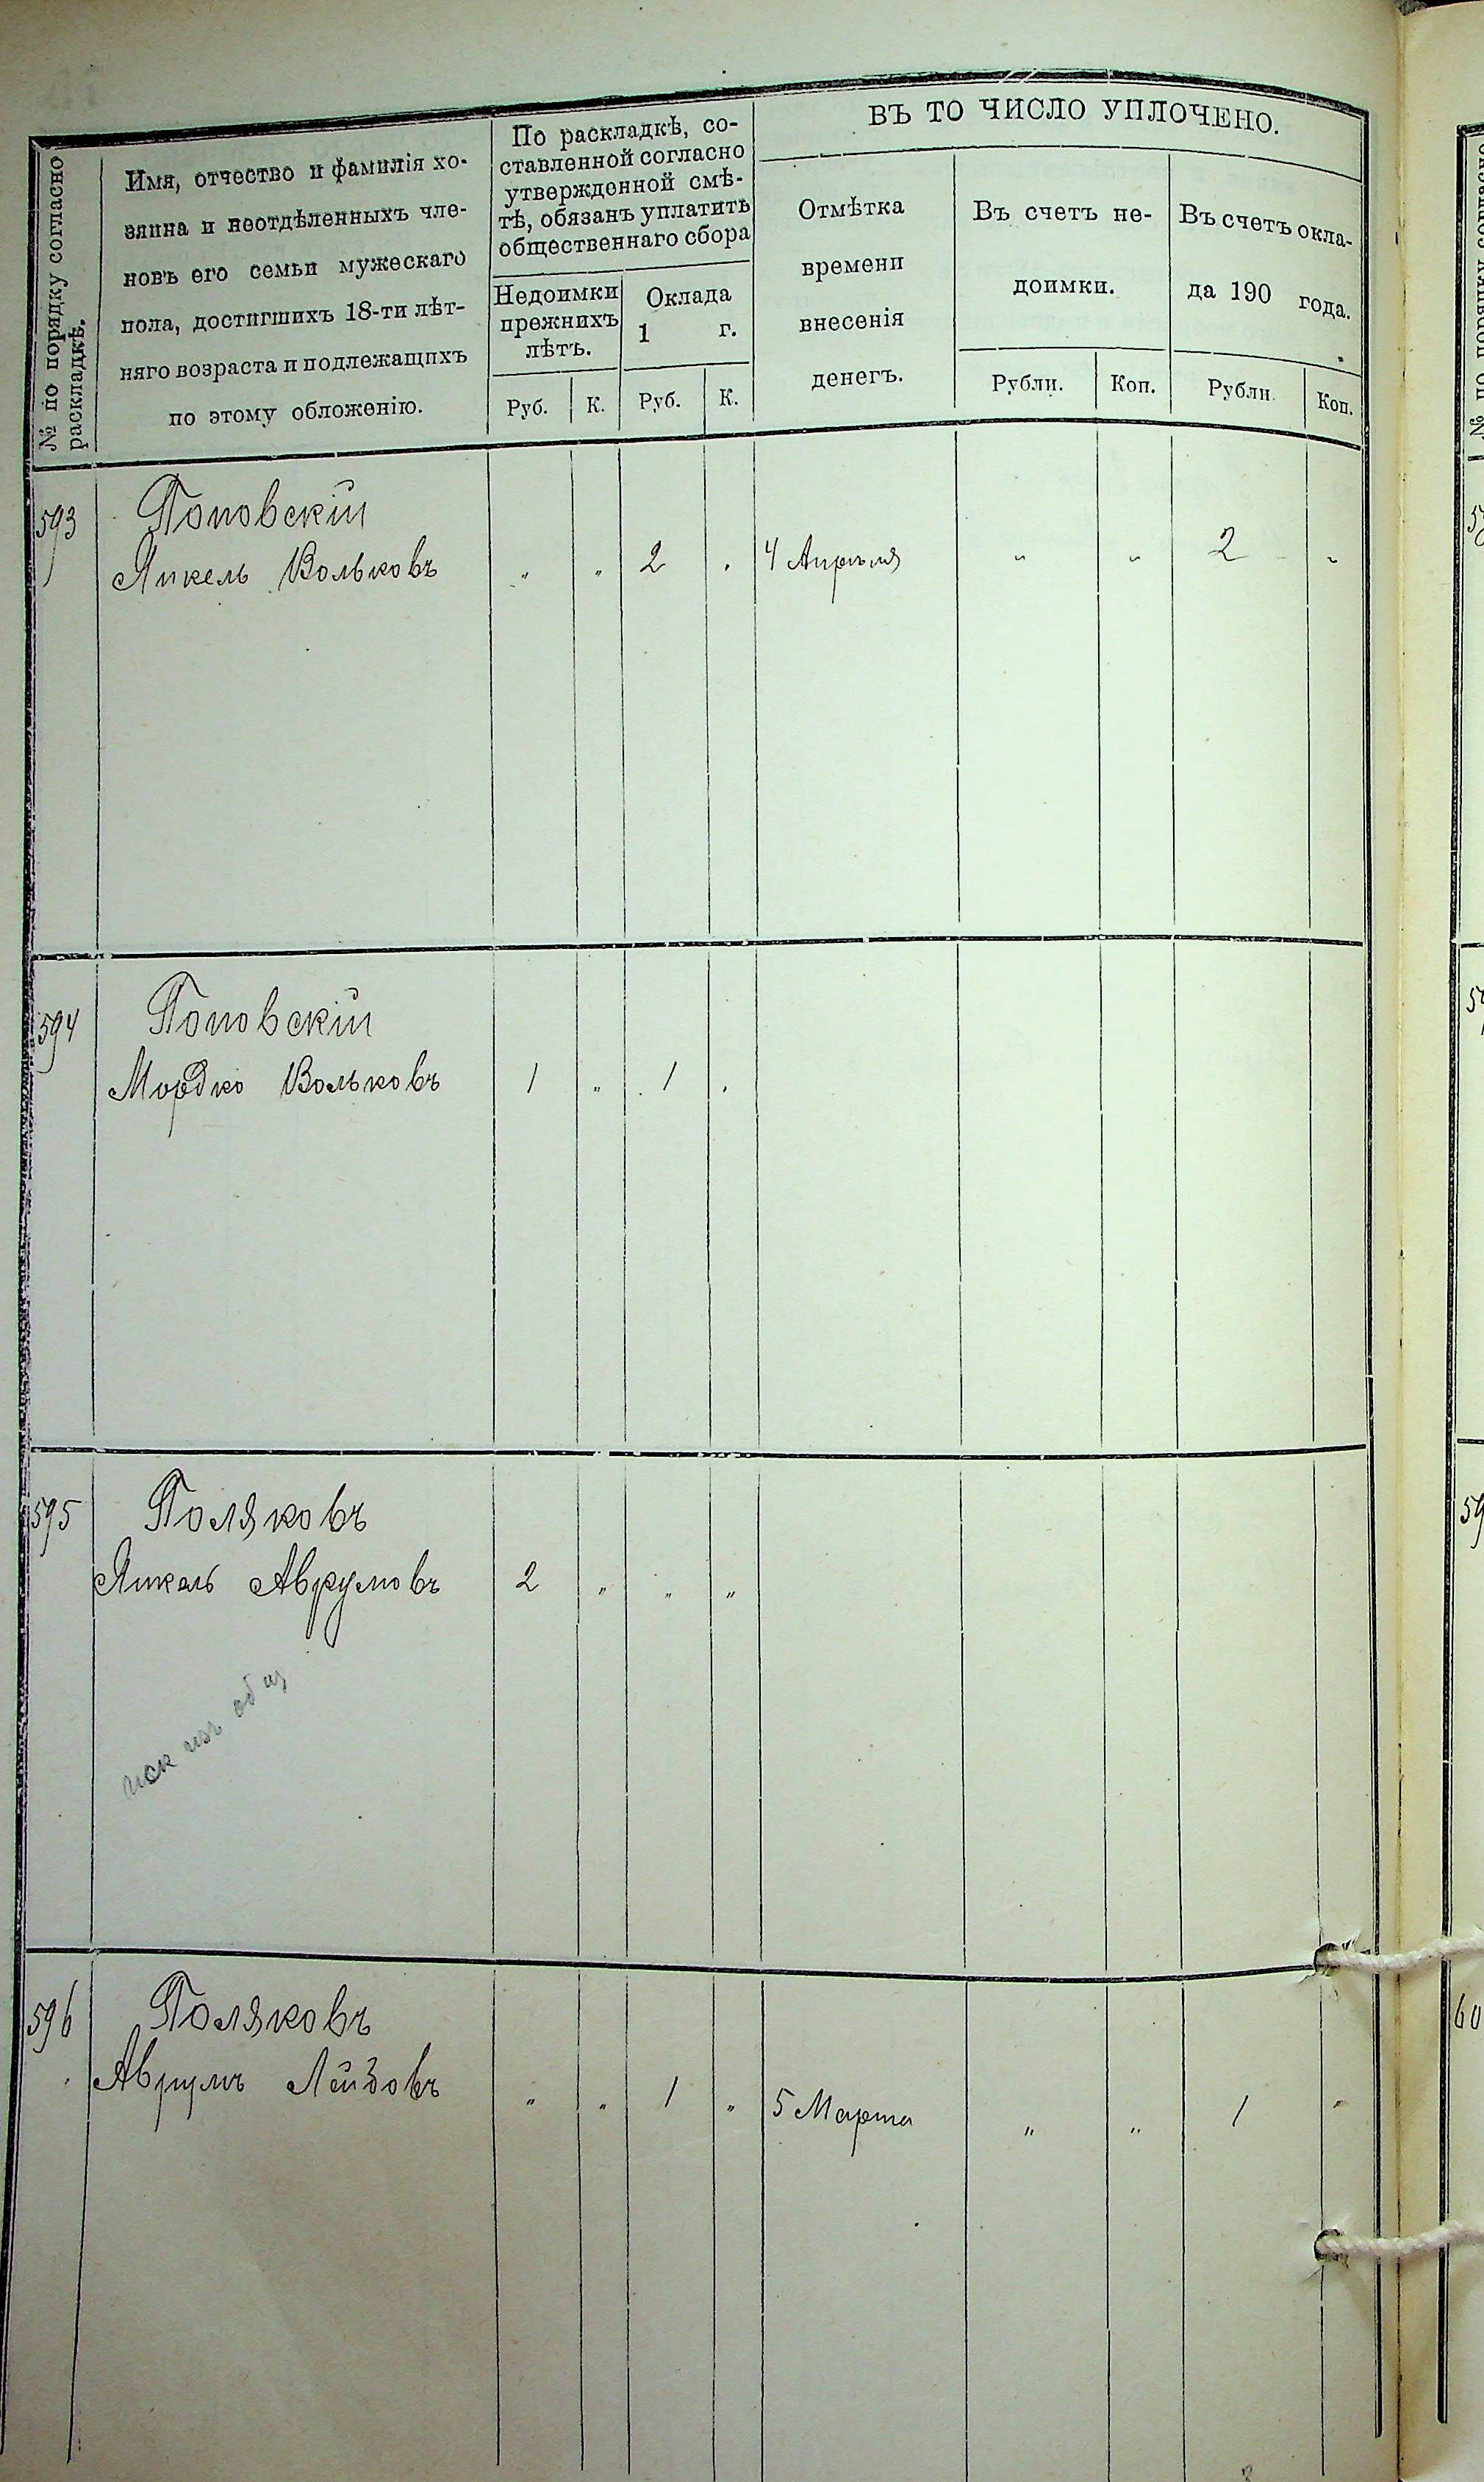 ВЪ ТО ЧИСЛО УПЛОЧЕНО.
№ по порядку согласно
раскладкѣ.
Имя, отчество и фамилія хо-
зяина и неотдѣленныхъ чле-
новъ его семьи мужескаго
пола, достигшихъ 18-ти лѣт-
няго возраста и подлежащихъ
по этому обложенію.
По раскладкѣ, со-
ставленной согласно
утвержденной смѣ-
тѣ, обязанъ уплатить
общественнаго сбора
Недоимки
прежнихъ
лѣтъ.
Оклада
1 г.
Руб. К. Руб. К.
Отмѣтка
времени
внесенія
денегъ.
Въ счетъ не-
доимки.
Рубли. Коп.
Въ счетъ окла-
да 190 года.
Рубли. Коп.
593 Поповскій
Янкель Вольковъ „ „ 2 „ 4 Апрѣля „ „ 2 „
594 Поповскій
Мордко Вольковъ 1 „ 1 „
595 Поляковъ
Янкель Аврумовъ 2 „ „ „
596 Поляковъ
Аврумъ Лейбовъ „ „ 1 „ 5 Марта „ „ 1 „